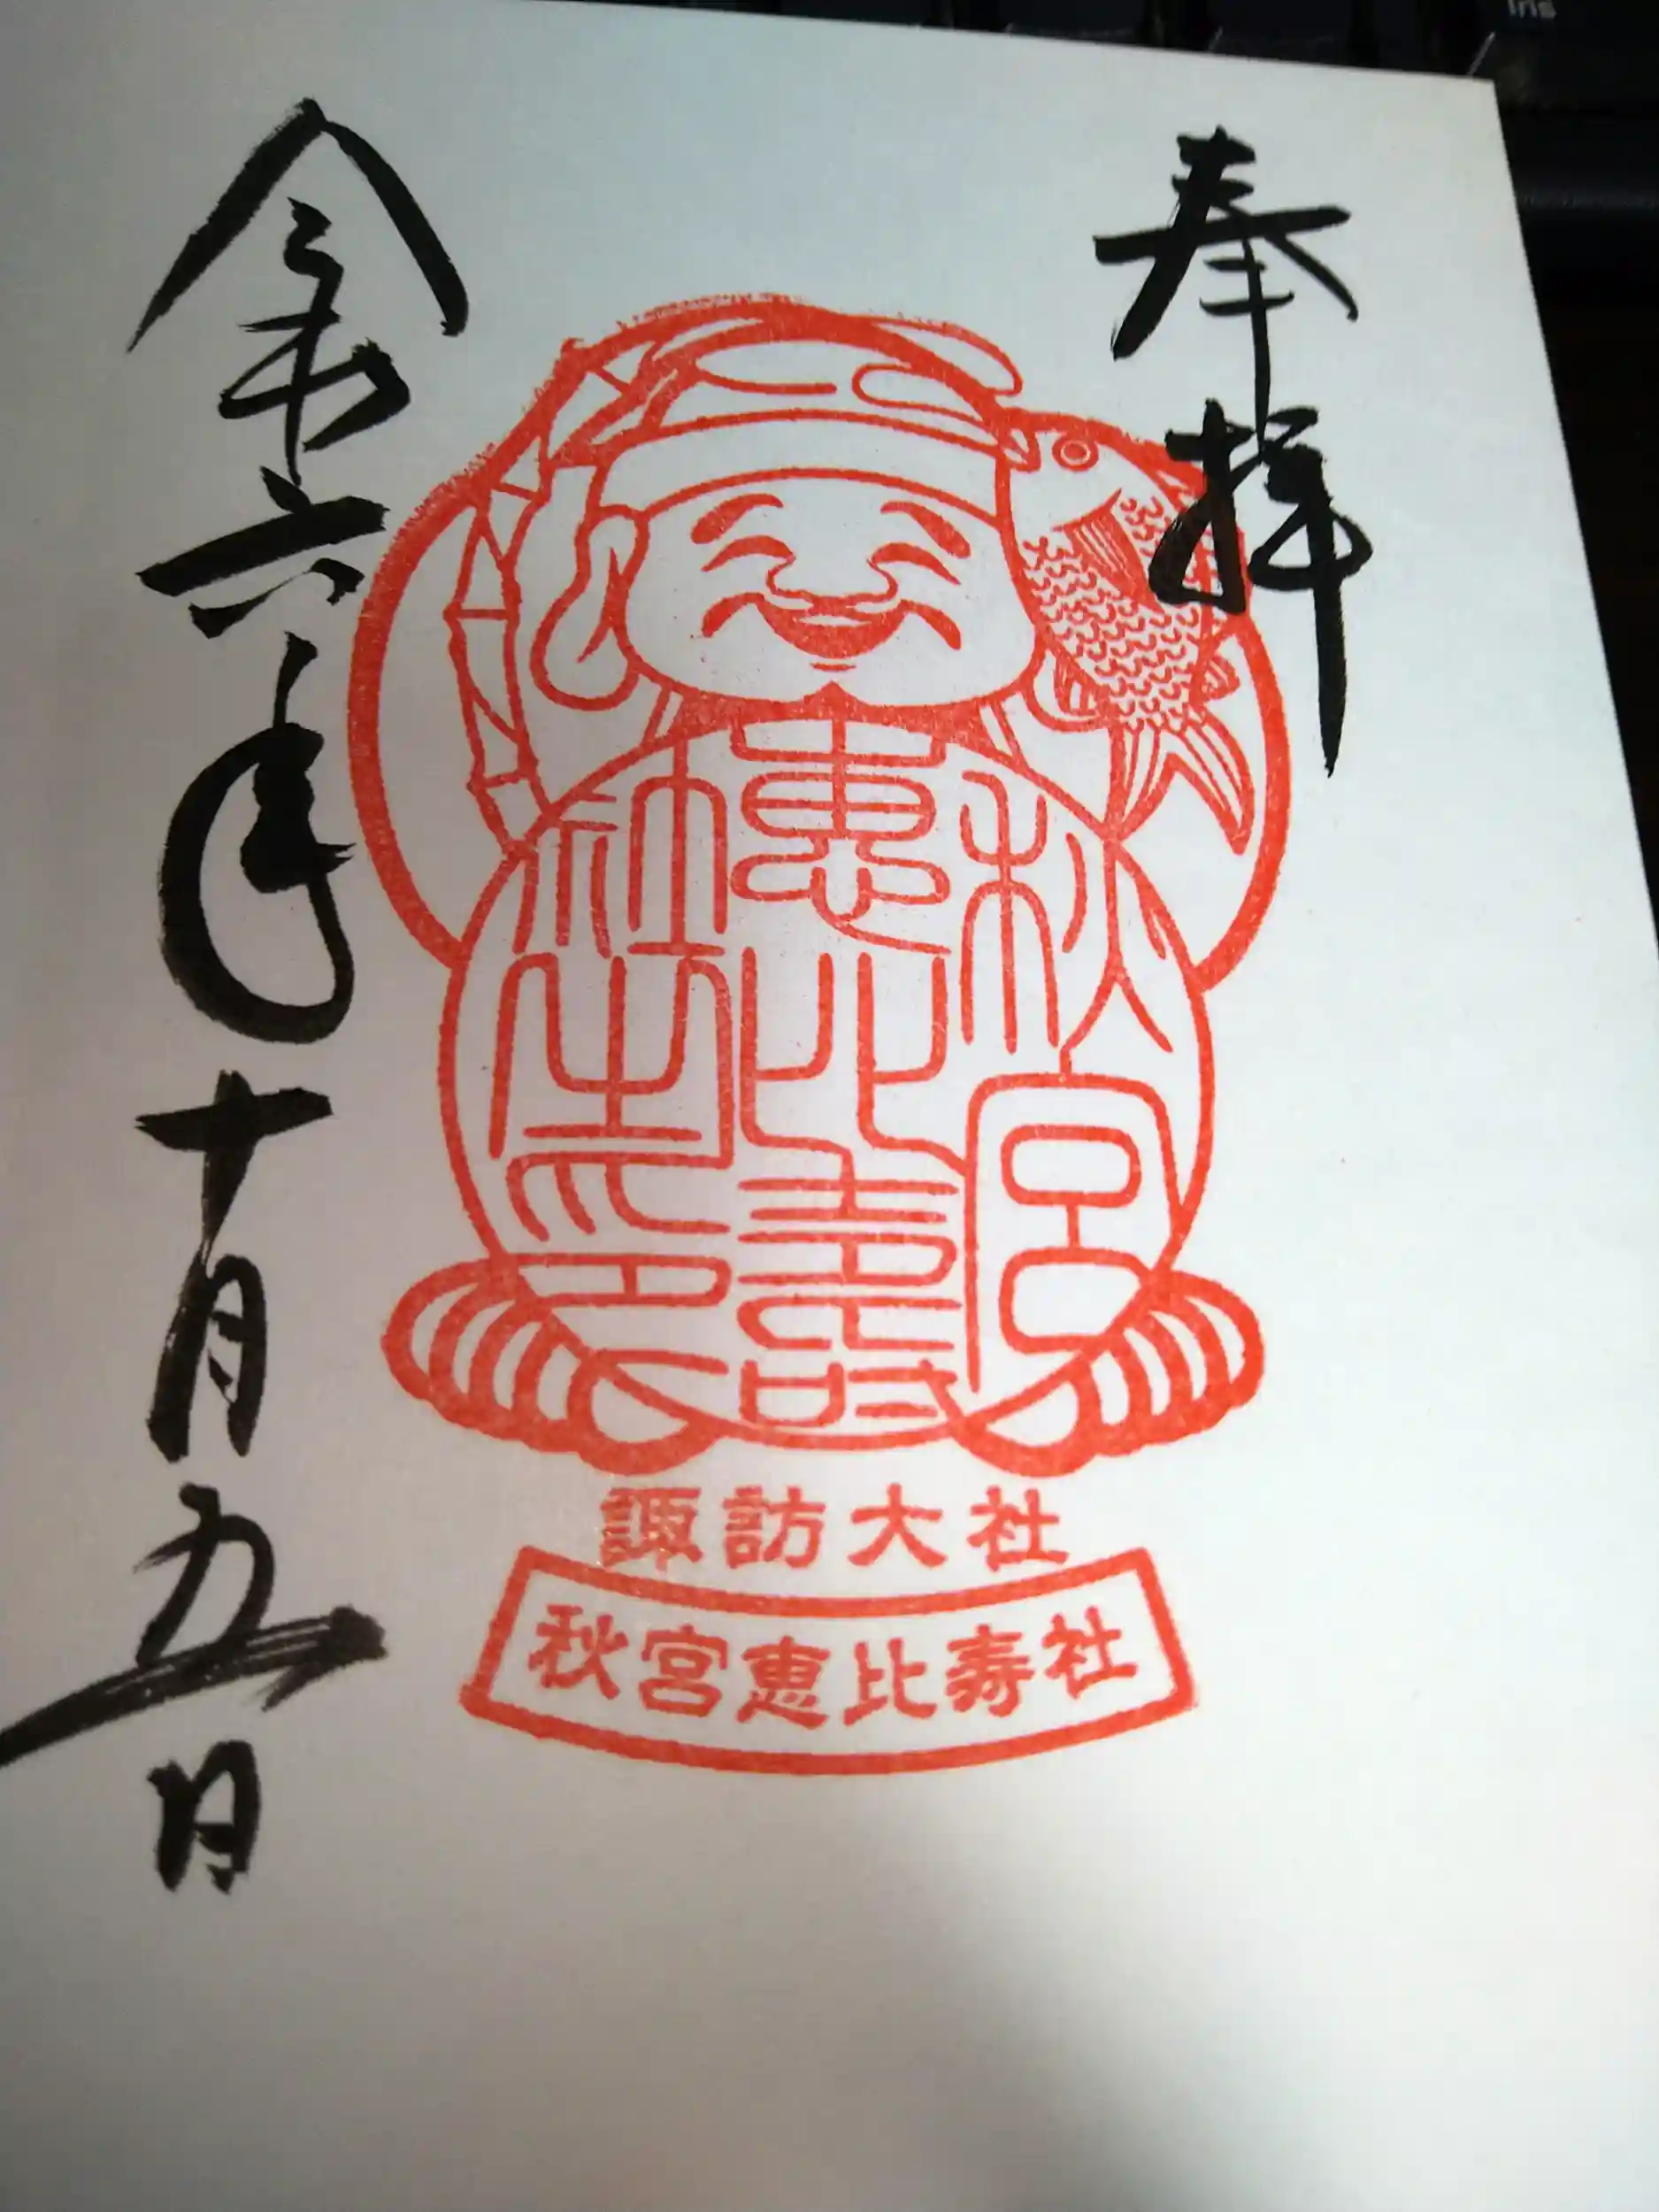 奉拝
秋宮
恵比寿
社之印
諏訪大社
秋宮恵比寿社
令和六年十月五日